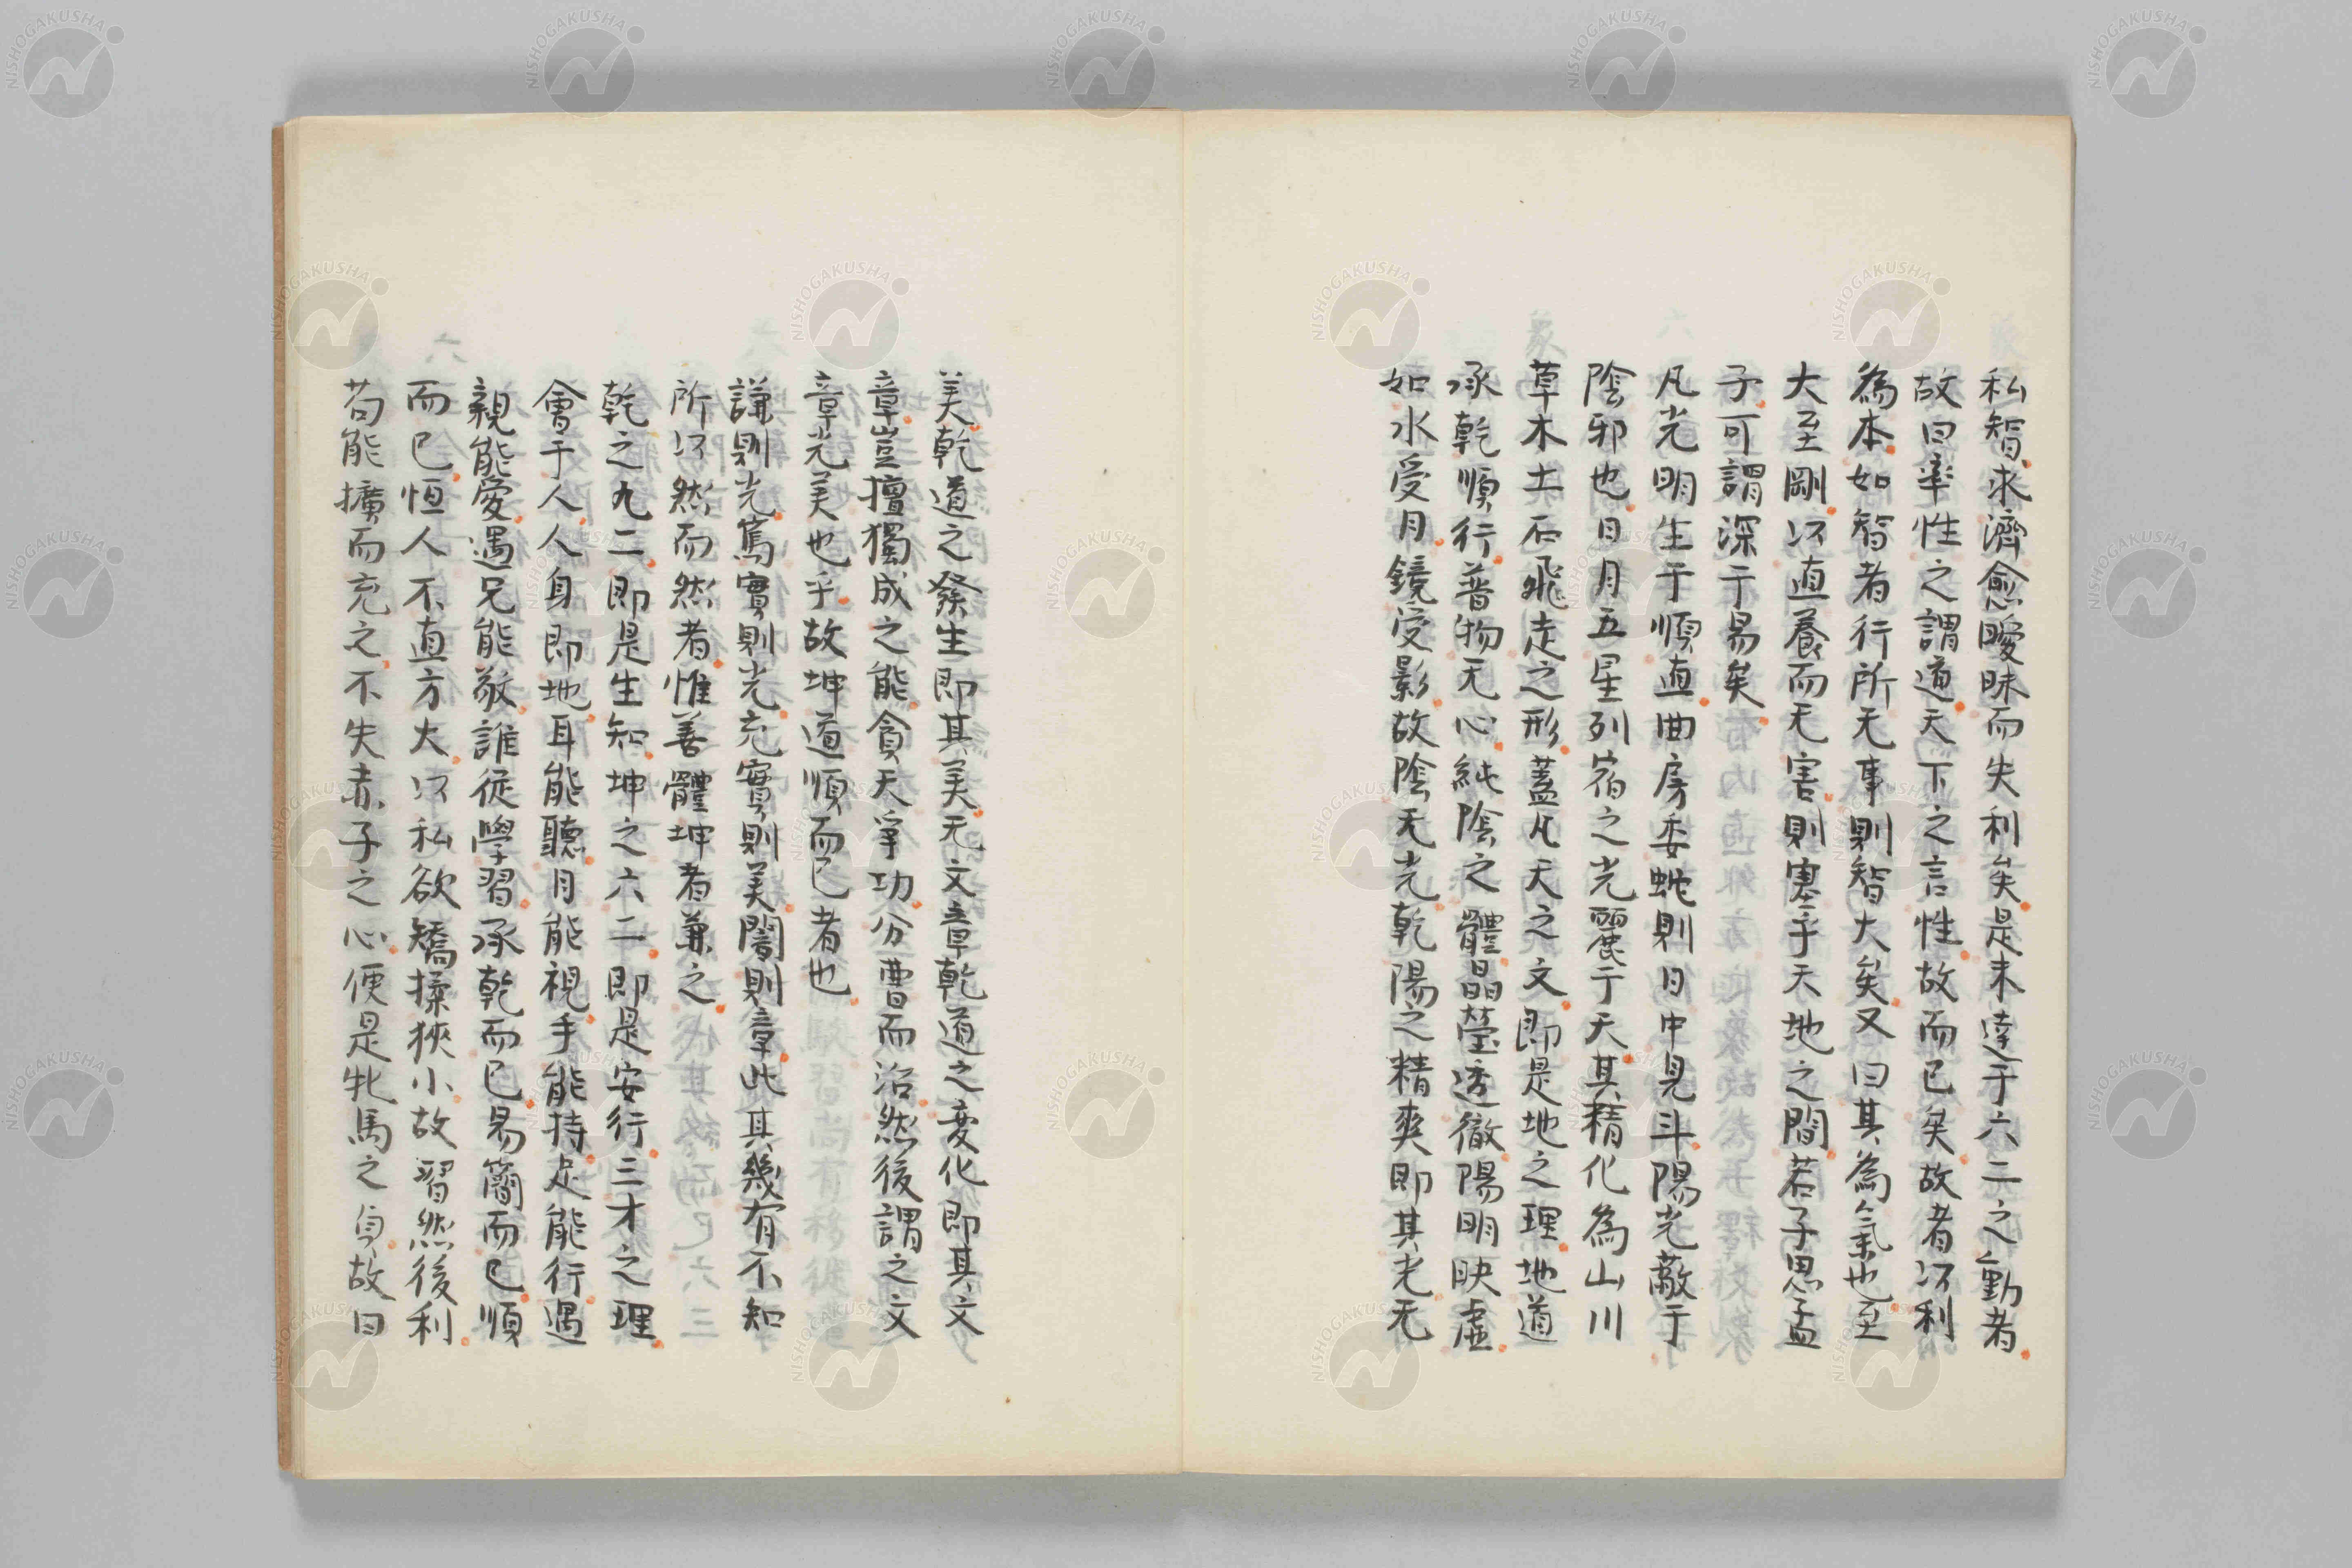 私智求濟愈曖昧而失利矣是未達于六二之動者
故曰率性之謂道天下之言性故而已矣故者以利
為本如智者行所无事則智大矣又曰其為氣也至
大至剛以直養而无害則塞乎天地之間若子思孟
子可謂深于易矣
凡光明生于順直曲房委蛇則日中見斗陽光蔽于
陰邪也日月五星列宿之光麗于天其精化為山川
草木土石飛走之形蓋凡天之文即是地之理地道
承乾順行普物无心純陰之體晶瑩透徹陽明映虛
如水受月鏡受影故陰无光乾陽之精爽即其光无
美乾道之發生即其美无文章乾道之变化即其文
章豈擅獨成之能貪天爭功分曹而治然後謂之文
章光美也乎故坤道順而已者也
謙則光篤實則光充實則美闇則章此其幾有不知
所以然而然者惟善體坤者兼之
乾之九二即是生知坤之六二即是安行三才之理
會于人人身即地耳能聽目能視手能持足能行遇
親能愛遇兄能敬誰從學習承乾而已易簡而已順
而已恒人不直方大以私欲矯揉狹小故習然後利
苟能擴而充之不失赤子之心便是牝馬之貞故曰
NISHOGAKUSHA